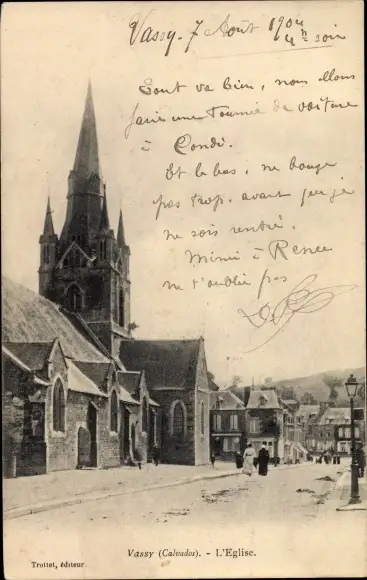 Vassy - 7 Août 1904
4h soir
Tout va bien, nous allons
faire une tournée de voiture
à Condé.
Et le bas, ne bouge
pas trop, avant que je
ne sois rentré.
Mimi à Renée
ne t'oublie pas
Vassy (Calvados). - L'Eglise.
Trottet, éditeur